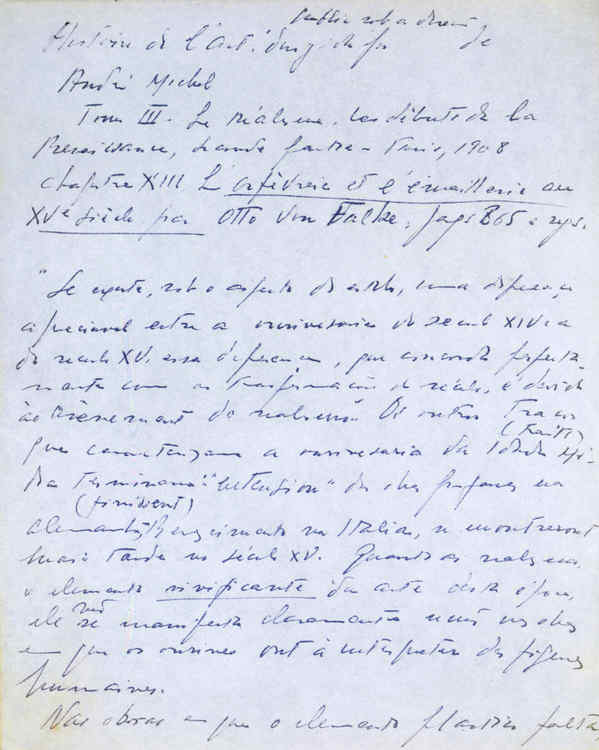 Histoire de l'Art de
André Michel
Tome III. Le réalisme. Les débuts de la
Renaissance, Paris, 1908
Chapitre XIII L'orfèvrerie et l'émaillerie au
XVe siècle par Otto Von Falke, page 865 e sgs.
"Se existe, sob o aspecto do estilo, uma diferença
apreciavel entre a ourivesaria do seculo XIV e a
do seculo XV, essa diferença, que concorda perfeita-
mente com as transformações do século, é devida
ao avènement do realismo. Os outros traços
(traits)
que caracterizam a ourivesaria da
"extension" das obras profanas na
(finissent)
Alemanha, Renascimento na Italia, se montreront
mais tarde no século XV. Quando ao realismo,
o elemento vivificante da arte desta época,
ele não se manifesta claramente nas obras
em que os ourives ont à interpretar des figures
humaines.
Nas obras em que o elemento plastico falta,